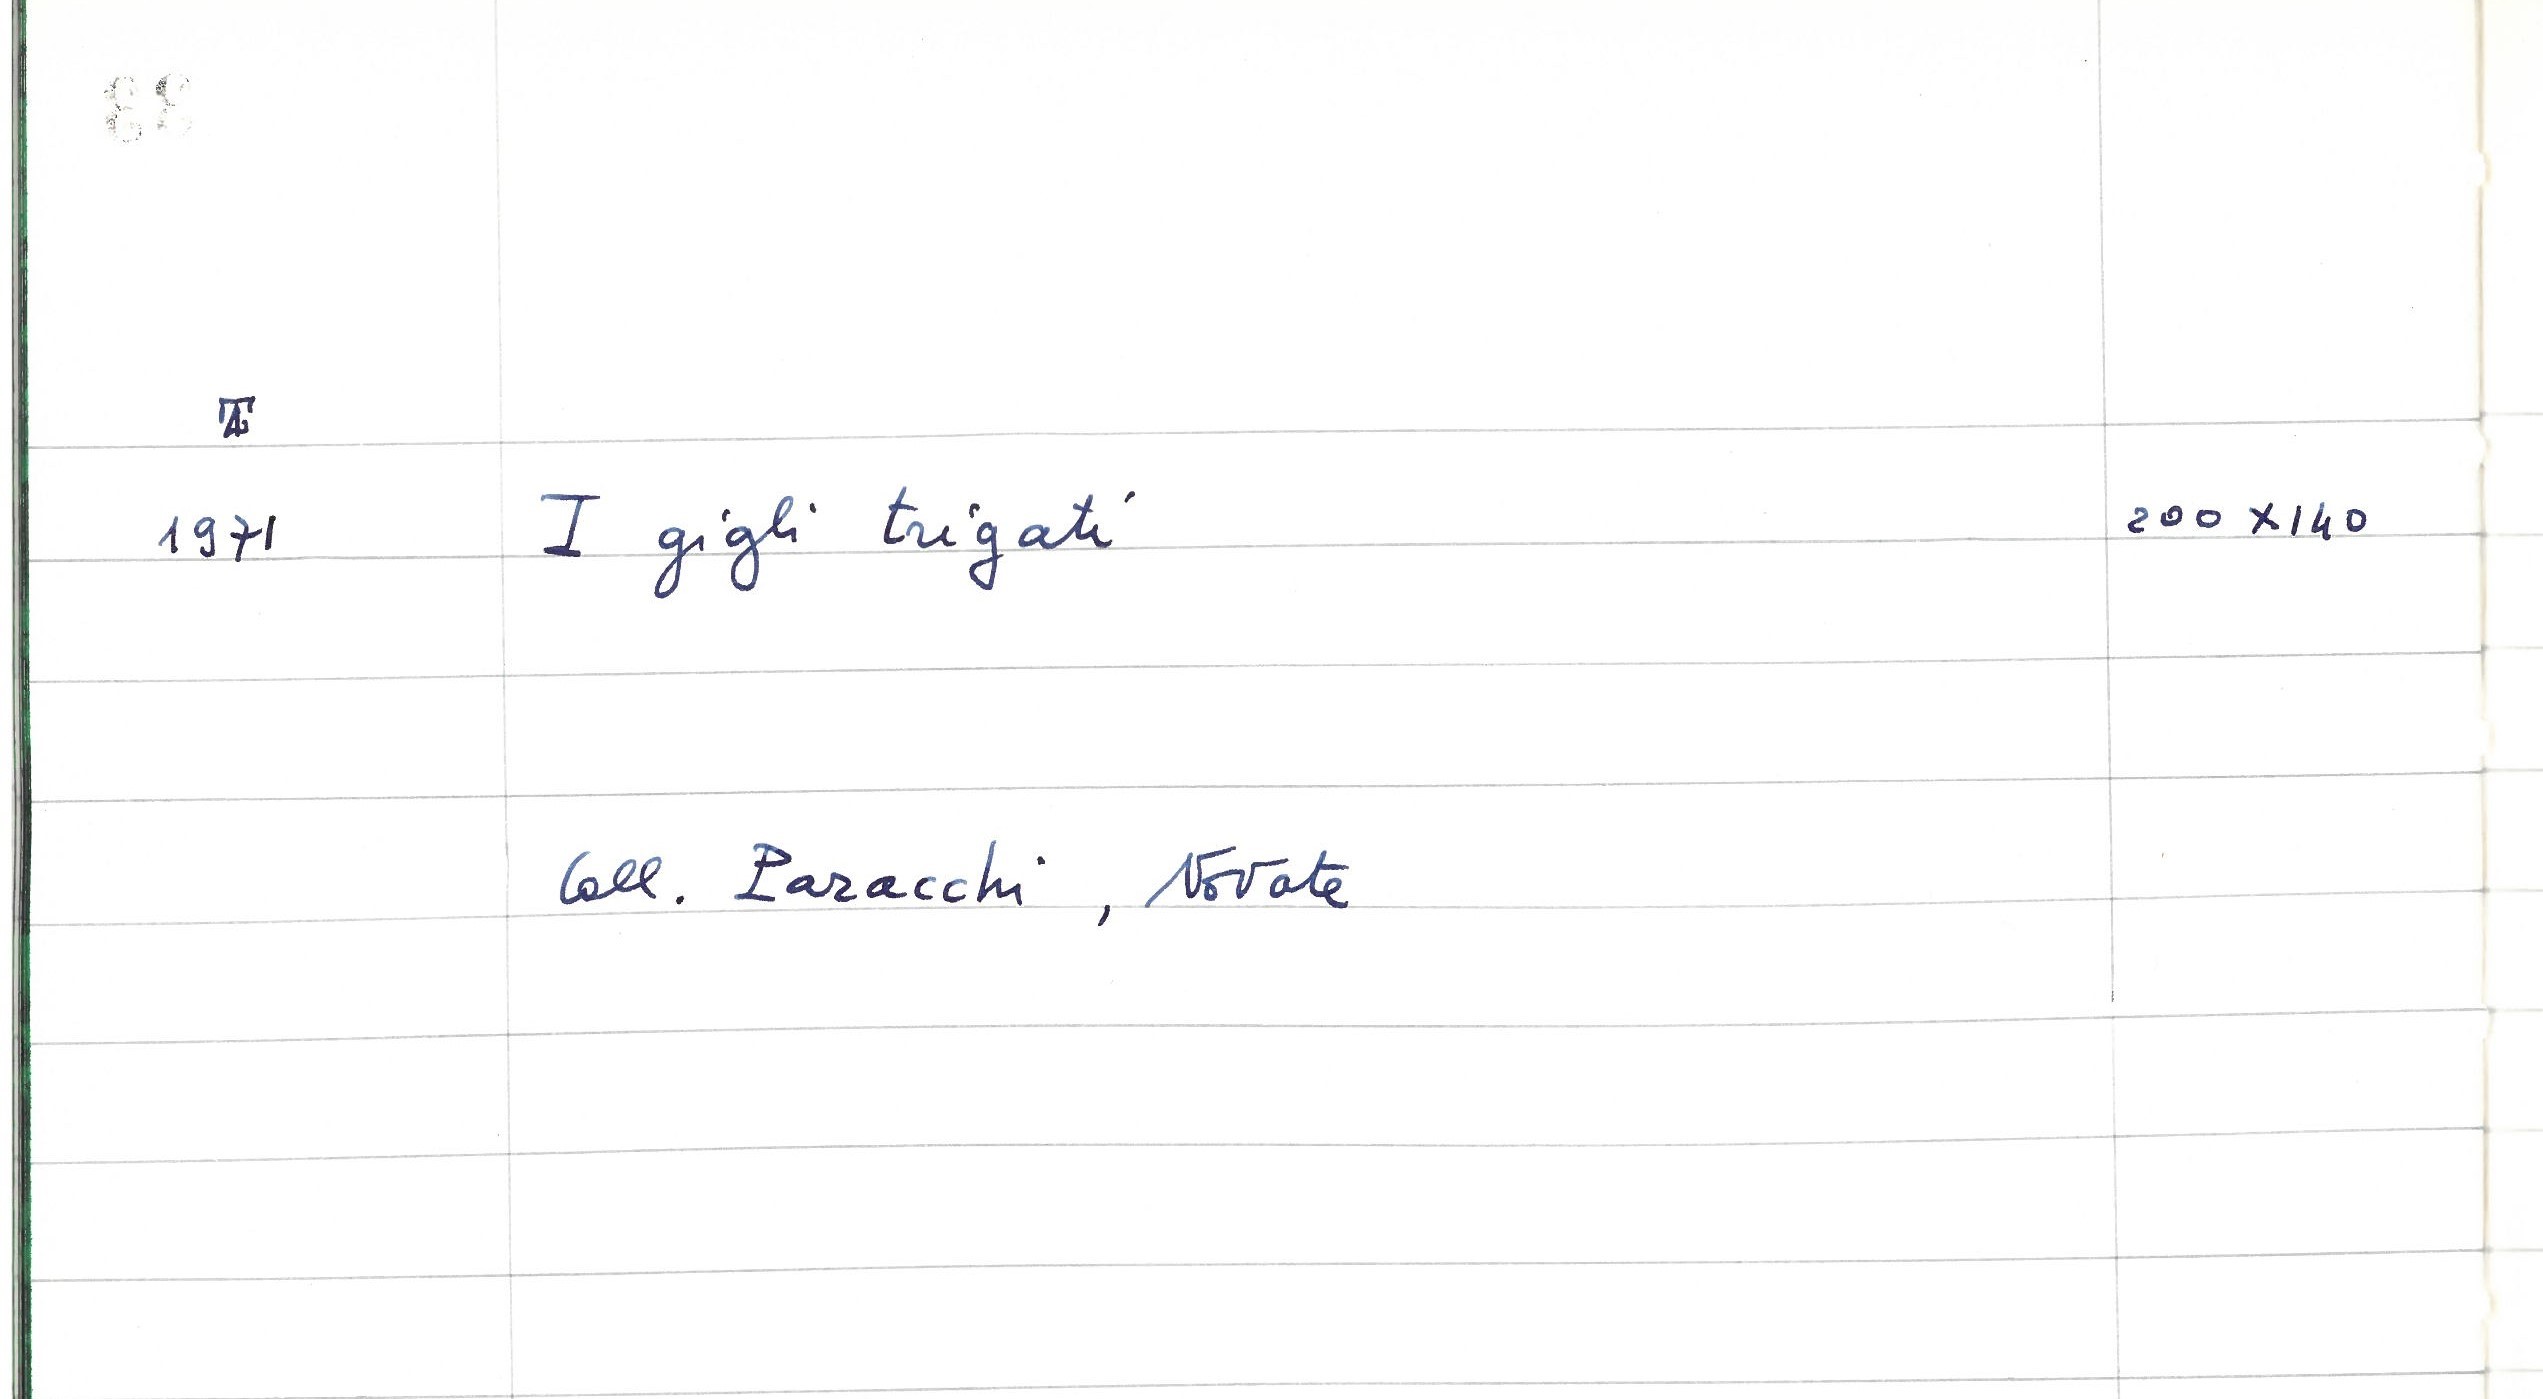 1971 I gigli trigati 200 x 140
Coll. Paracchi, Novate